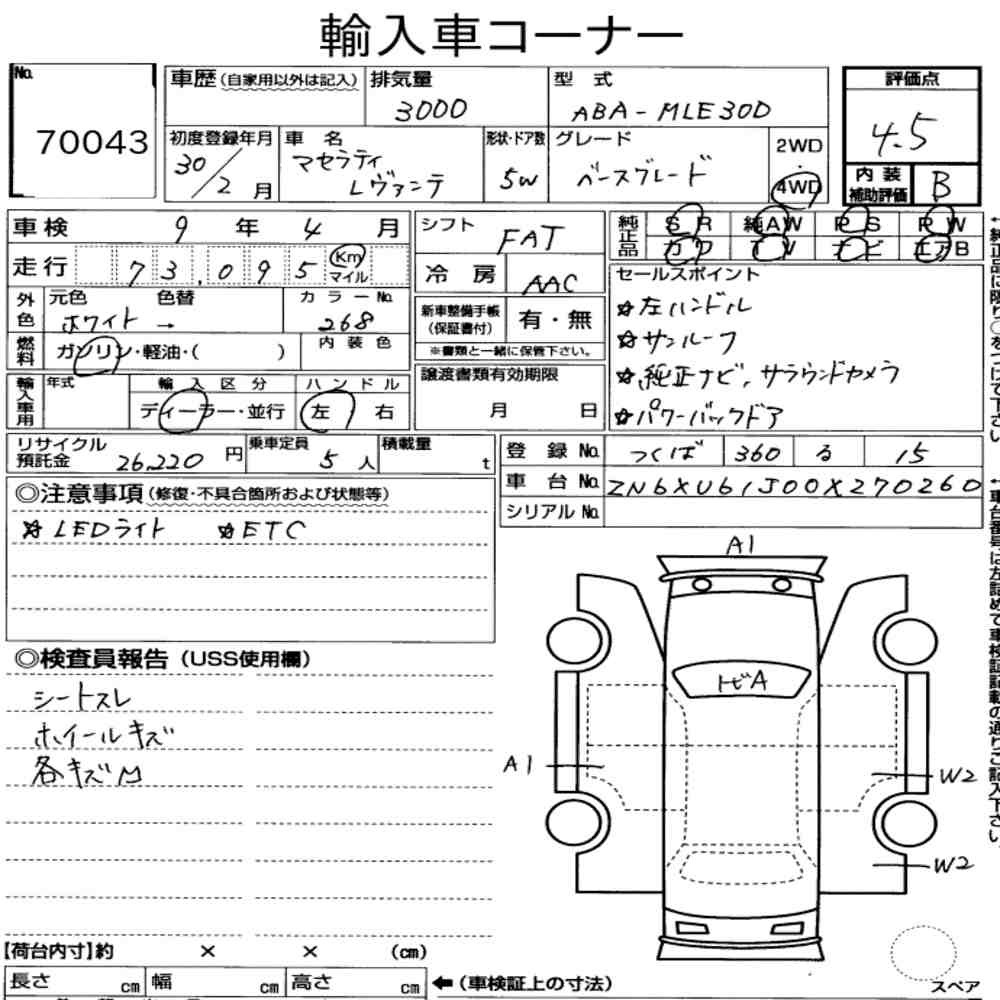 輸入車コーナー
No. 70043
車歴 (自家用以外は記入)
排気量 3000
型式 ABA-MLE30D
評価点 4.5
初度登録年月 30/2月
車名 マセラティ レヴァンテ
形状・ドア数 5W
グレード ベースグレード
2WD・4WD
内装補助評価 B
車検 9年 4月
シフト FAT
純正品 SR 純AW PS PW
カワ TV ナビ エアB
走行 73,095 Km マイル
冷房 AAC
セールスポイント
☆左ハンドル
☆サンルーフ
☆純正ナビ, サラウンドカメラ
☆パワーバックドア
外色 元色 ホワイト → 色替 カラーNo. 268
新車整備手帳(保証書付) 有・無
※書類と一緒に保管下さい。
燃料 ガソリン・軽油・( ) 内装色
譲渡書類有効期限 月 日
輸入車用 年式 輸入区分 ディーラー・並行 ハンドル 左 右
リサイクル預託金 26,220円
乗車定員 5人
積載量 t
登録No. つくば 360 る 15
車台No. ZN6XU61J00X270260
シリアルNo.
◎注意事項 (修復・不具合箇所および状態等)
☆LEDライト ☆ETC
◎検査員報告 (USS使用欄)
シートスレ
ホイールキズ
各キズM
A1
トビA
A1
W2
W2
【荷台内寸】約 × × (cm)
長さ cm 幅 cm 高さ cm
←(車検証上の寸法)
スペア
←純正品に限り○をつけて下さい。
←車台番号は左詰めで車検証記載の通りご記入下さい。